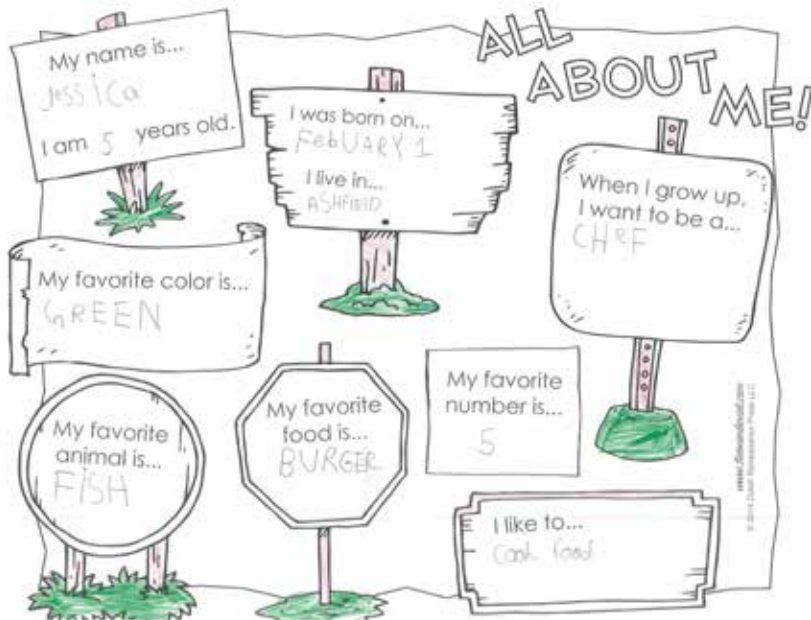 ALL
ABOUT
ME!
My name is...
Jessica
I am 5 years old.
I was born on...
FebUARY 1
I live in...
ASHFIELD
When I grow up,
I want to be a...
CHeF
My favorite color is...
GREEN
My favorite
animal is...
FiSH
My favorite
food is...
BURGER
My favorite
number is...
5
I like to...
Cook food
www.timvandevall.com
© 2014 Dutch Renaissance Press LLC